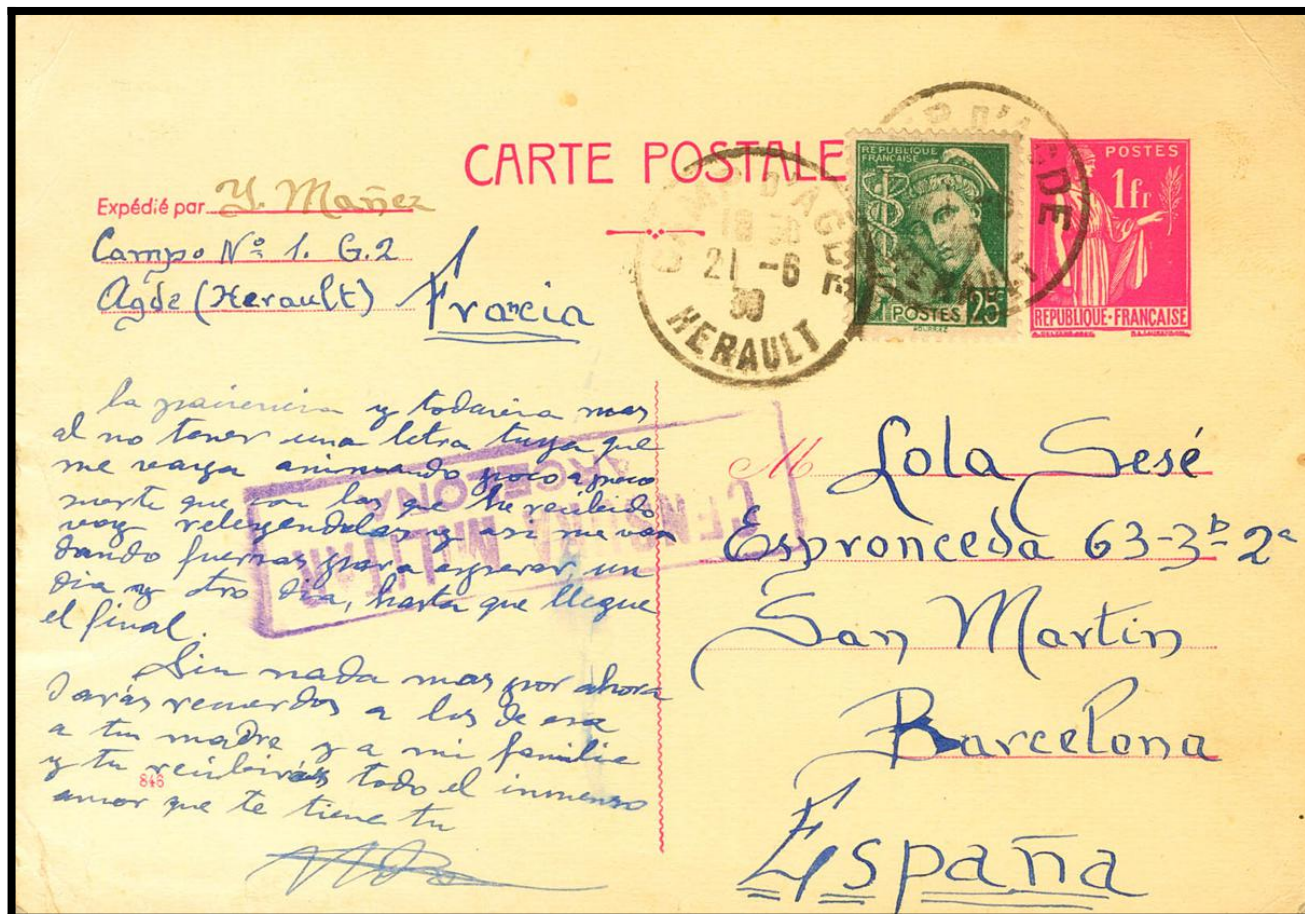 CARTE POSTALE
Expédié par Y. Mañez
Campo Nº 1. G.2
Agde (Herault) Francia
CAMP D'AGDE
21 -6
HERAULT
REPUBLIQUE
FRANÇAISE
POSTES 25c
POSTES
1fr
REPUBLIQUE·FRANÇAISE
la y todavia mas
al no tener una letra tuya que
me vaya animando poco a poco
que con las que he recibido
voy releyendolas y asi me van
dando fuerzas para esperar, un
dia y otro dia, hasta que llegue
el final.
Sin nada mas por ahora
Darás recuerdos a los de esa
a tu madre y a mi familia
y tu recibirás todo el inmenso
amor que te tiene tu
846
CENSURA MILITAR
BARCELONA
M Lola Sesé
Espronceda 63-3º-2ª
San Martin
Barcelona
España